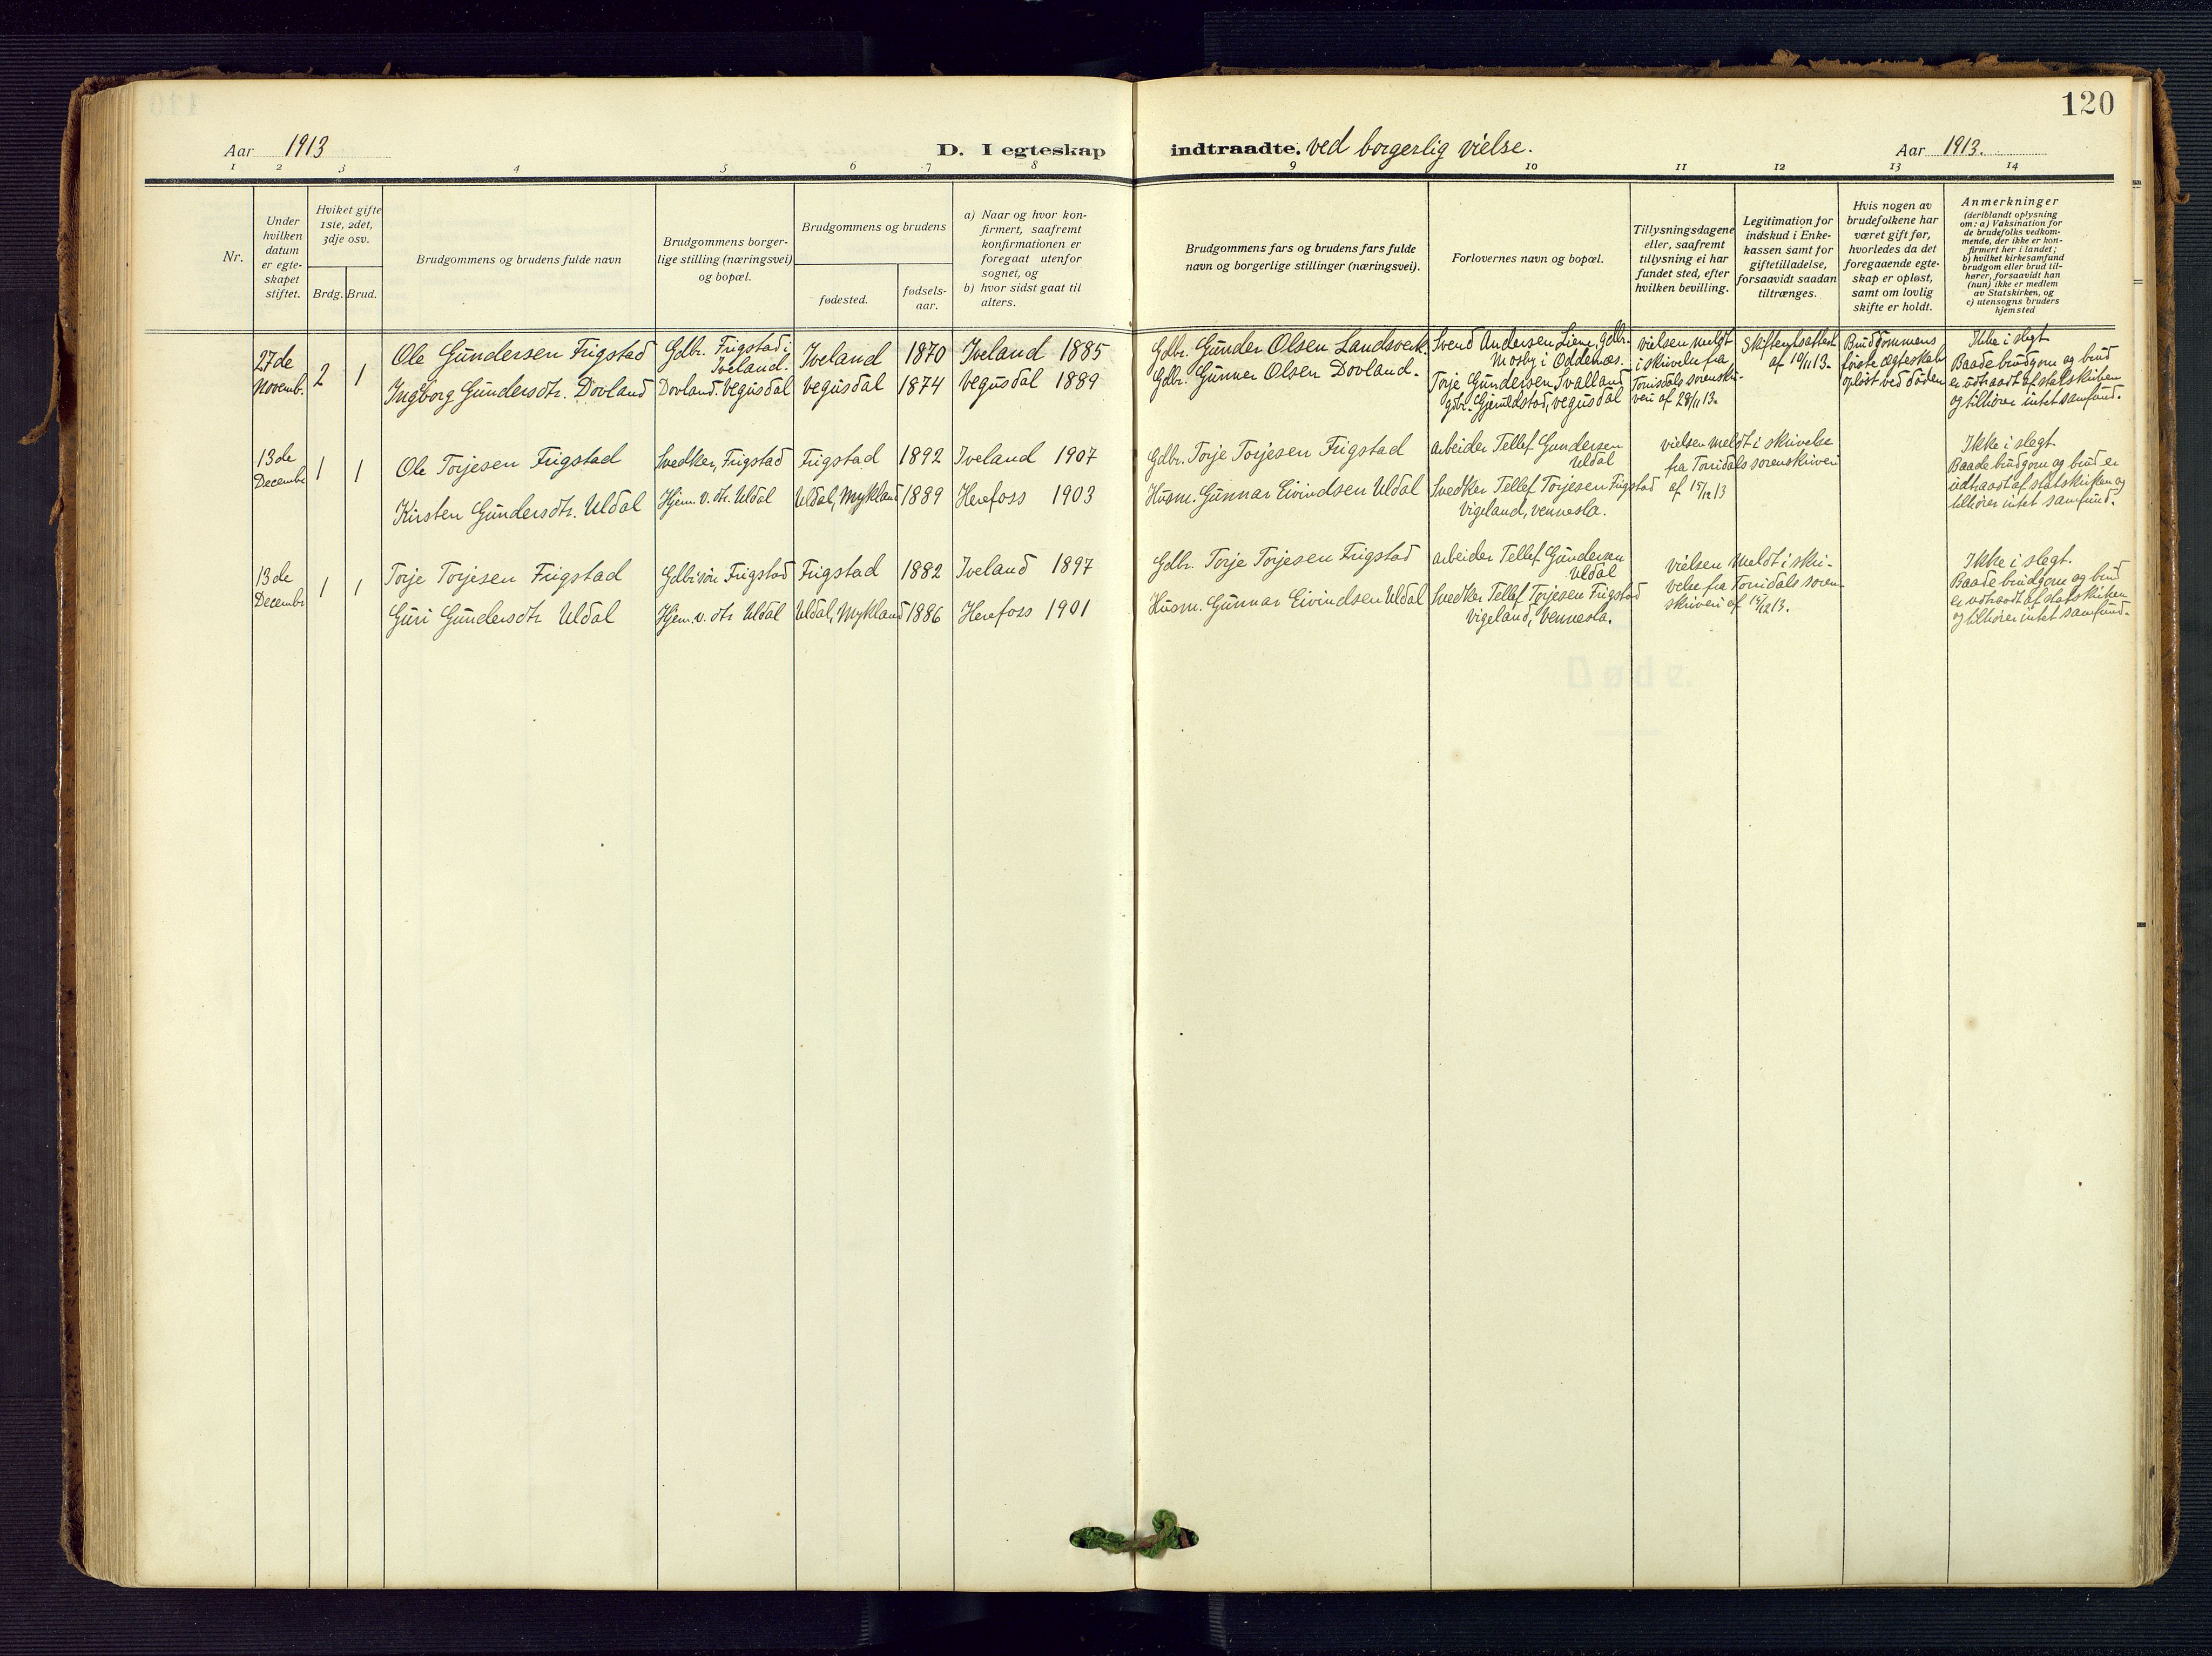 120
Aar 1913
D. I egteskap
indtraadte. ved borgerlig vielse.
Aar 1913.
1 2 3 4 5 6 7 8 9 10 11 12 13 14
Nr.
Under
hvilken
datum
er egte-
skapet
stiftet.
Hvilket gifte
1ste, 2det,
3dje osv.
Brdg. Brud.
Brudgommens og brudens fulde navn
Brudgommens borger-
lige stilling (næringsvei)
og bopæl.
Brudgommens og brudens
fødested.
fødsels-
aar.
a) Naar og hvor kon-
firmert, saafremt
konfirmationen er
foregaat utenfor
sognet, og
b) hvor sidst gaat til
alters.
Brudgommens fars og brudens fars fulde
navn og borgerlige stillinger (næringsvei).
Forlovernes navn og bopæl.
Tillysningsdagene
eller, saafremt
tillysning ei har
fundet sted, efter
hvilken bevilling.
Legitimation for
indskud i Enke-
kassen samt for
giftetilladelse,
forsaavidt saadan
tiltrænges.
Hvis nogen av
brudefolkene har
været gift før,
hvorledes da det
foregaaende egte-
skap er opløst,
samt om lovlig
skifte er holdt.
Anmerkninger
(deriblandt oplysning
om: a) Vaksination for
de brudefolks vedkom-
mende, der ikke er kon-
firmert her i landet;
b) hvilket kirkesamfund
brudgom eller brud til-
hører, forsaavidt han
(hun) ikke er medlem
av Statskirken, og
c) utensogns bruders
hjemsted
27de
Novemb.
2 1
Ole Gundersen Frigstad
Ingeborg Gundersdtr. Dovland
Gdbr. Frigstad i
Iveland.
Dovland. Vegusdal
Iveland 1870 Iveland 1885
Vegusdal 1874 Vegusdal 1889
Gdbr. Gunder Olsen Landsverk.
Gdbr. Gunner Olsen Dovland.
Svend Andersen Liene, Gdbr.
Mosby i Oddernæs.
Torje Gundersen Tvalland
gdbr. Gjeruldstad, vegusdal
vielsen meldt
i skrivelse fra
Torridals sorenskri-
veri af 28/11 13.
Skifteretsattest
af 10/11 13.
Brudgommens
første ægteskab
opløst ved døden
Ikke i slegt
Baade brudgom og brud
er udtraadt af statskirken
og tilhører intet samfund.
13de
Decembr
1 1
Ole Torjesen Frigstad
Kirsten Gundersdtr. Uldal
Svedker, Frigstad
Hjem. v. dtr. Uldal
Frigstad 1892 Iveland 1907
Uldal, Mykland 1889 Herefoss 1903
Gdbr. Torje Torjesen Frigstad
Husm. Gunnar Eivindsen Uldal
arbeider Tellef Gundersen
Uldal
Svedker Tellef Torjesen Frigstad
Vigeland, Vennesla.
vielsen meldt i skrivelse
fra Torridals sorenskriveri
af 15/12 13
Ikke i slegt.
Baade brudgom og brud er
udtraadt af statskirken og
tilhører intet samfund.
13de
Decembr
1 1
Torje Torjesen Frigstad
Guri Gundersdtr Uldal
Gdbrsøn Frigstad
Hjem. v. dtr Uldal
Frigstad 1882 Iveland 1897
Uldal, Mykland 1886 Herefoss 1901
Gdbr. Torje Torjesen Frigstad
Husm. Gunnar Eivindsen Uldal
arbeider Tellef Gundersen
Uldal
Svedker Tellef Torjesen Frigstad
Vigeland, Vennesla.
vielsen meldt i skri-
velse fra Torridals soren-
skriveri af 15/12 13.
Ikke i slegt.
Baade brudgom og brud
er udtraadt af statskirken
og tilhører intet samfund.